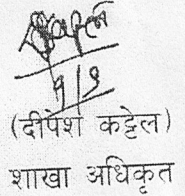 ५/९
(दीपेश कट्टेल)
शाखा अधिकृत